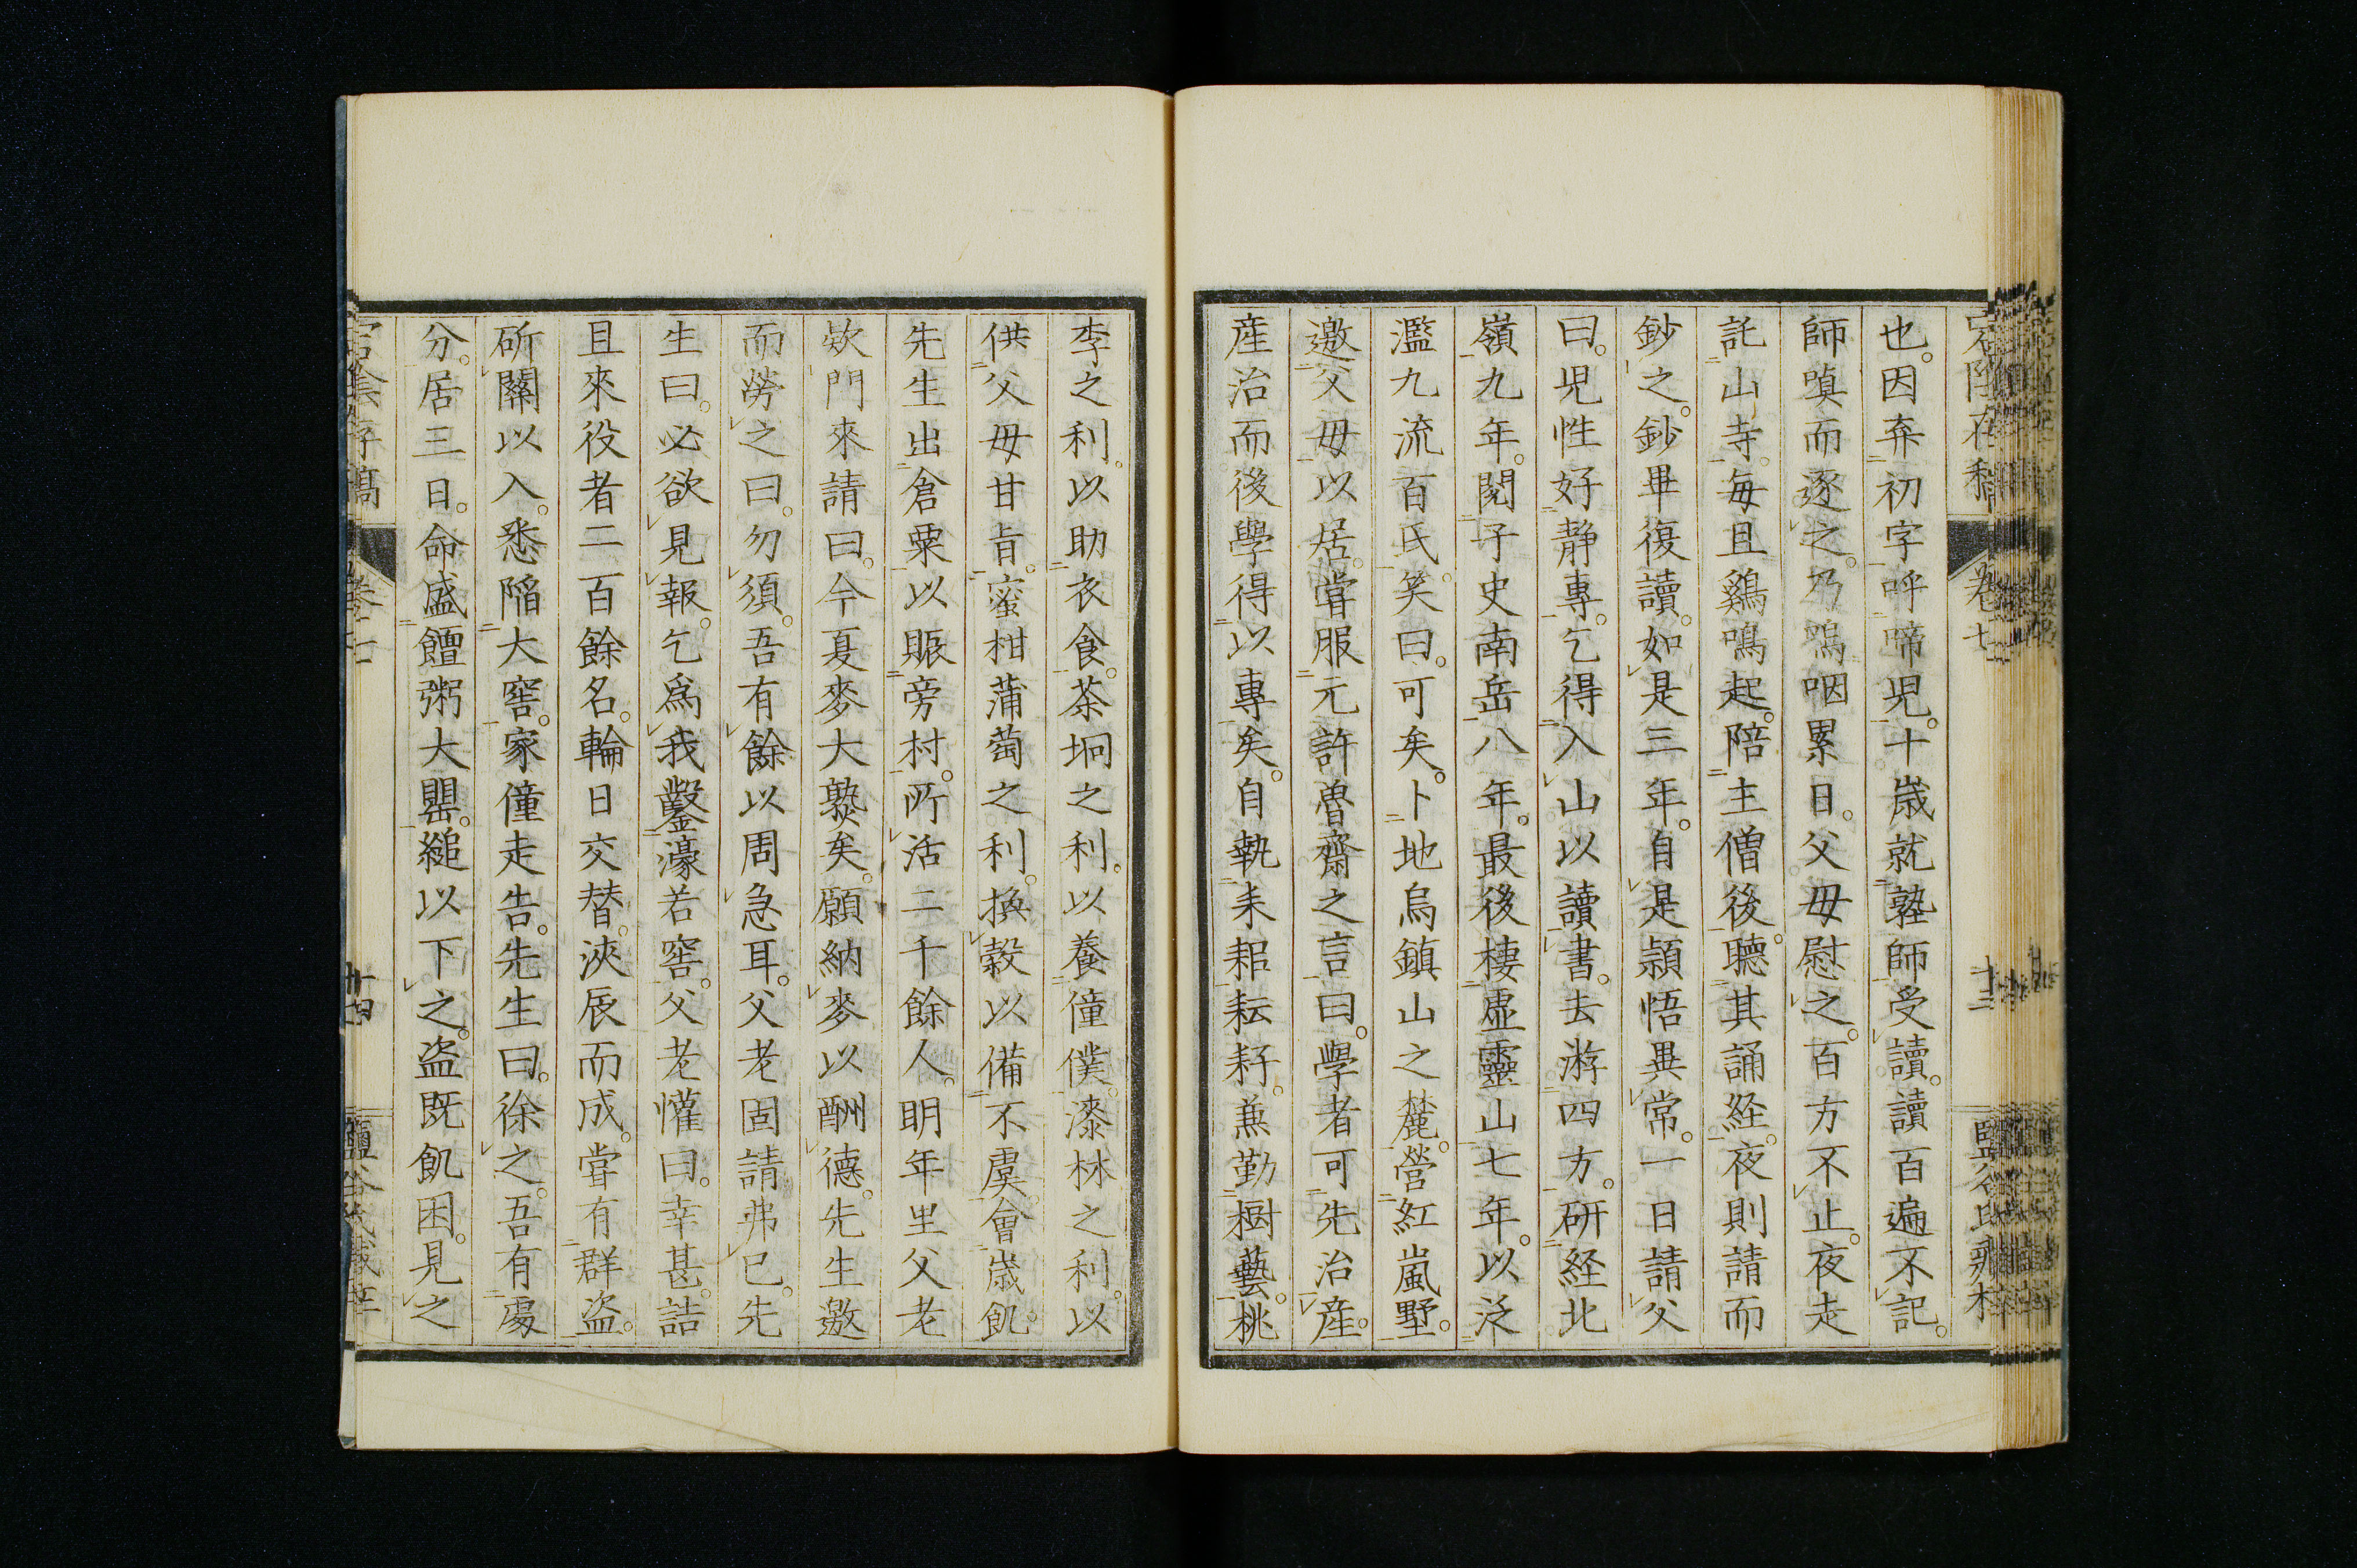 也。因弃初字呼啼児。十歳就塾師受讀。讀百遍不記。
師嗔而逐之。乃嗚咽累日。父毋慰之。百方不止。夜走
託山寺。毎且鷄鳴起。陪主僧後。聽其誦経。夜則請而
鈔之。鈔畢復讀。如是三年。自是頴悟異常。一日請父
曰。児性好靜專。乞得入山以讀書。去游四方。研経北
嶺九年。閲子史南岳八年。最後棲虚靈山七年。以泛
濫九流百氏。笑曰。可矣。卜地烏鎮山之麓。營紅嵐墅。
邀父毋以居。嘗服元許魯齋之言。曰。學者可先治産。
産治而後學得以專矣。自執耒耜耘耔。兼勤樹藝。桃
李之利。以助衣食。茶垌之利。以養僮僕。漆林之利。以
供父毋甘旨。蜜柑蒲萄之利。換穀以備不虞。會歳飢。
先生出倉粟以賑旁村。所活二千餘人。明年里父老
欵門來請曰。今夏麥大熟矣。願納麥以酬德。先生邀
而勞之曰。勿須。吾有餘以周急耳。父老固請弗已。先
生曰。必欲見報。乞爲我鑿濠若窖。父老懽曰。幸甚。詰
且來役者二百餘名。輪日交替。浹辰而成。嘗有群盗。
斫關以入。悉陷大窖。家僮走告。先生曰。徐之。吾有處
分。居三日。命盛饘粥大甖。縋以下之。盗既飢困。見之
宕陰存稿
卷七
十四